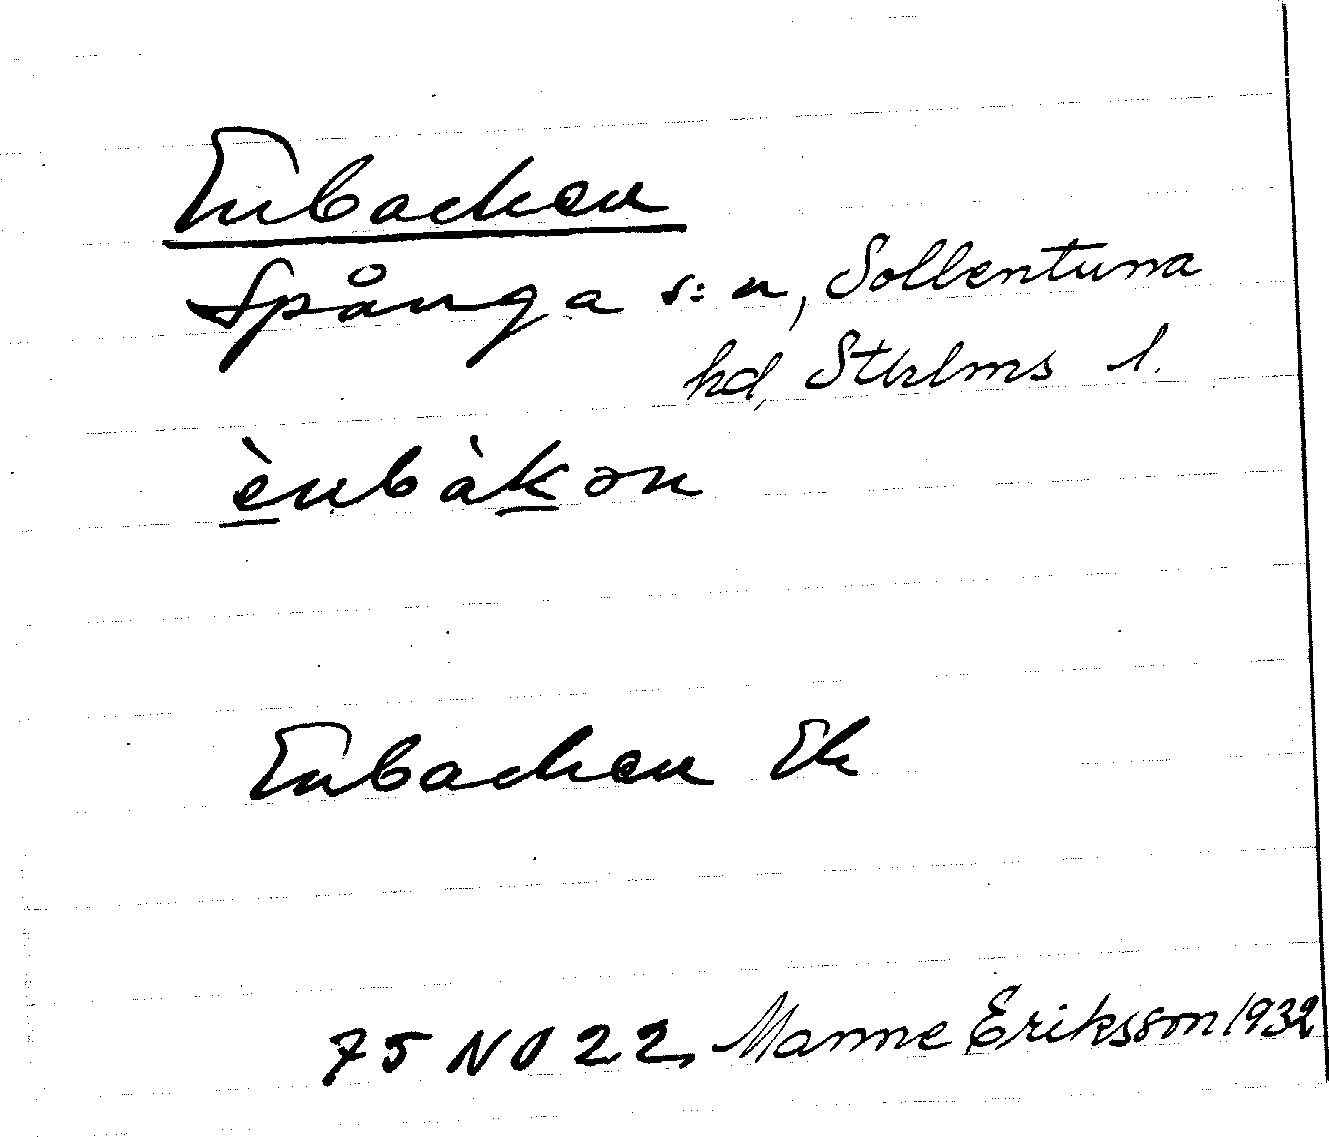 Enbacken
Spånga s:n, Sollentuna
hd, Sthlms l.
ènbàkən
Enbacken Ek
75 NO 22, Manne Eriksson 1932